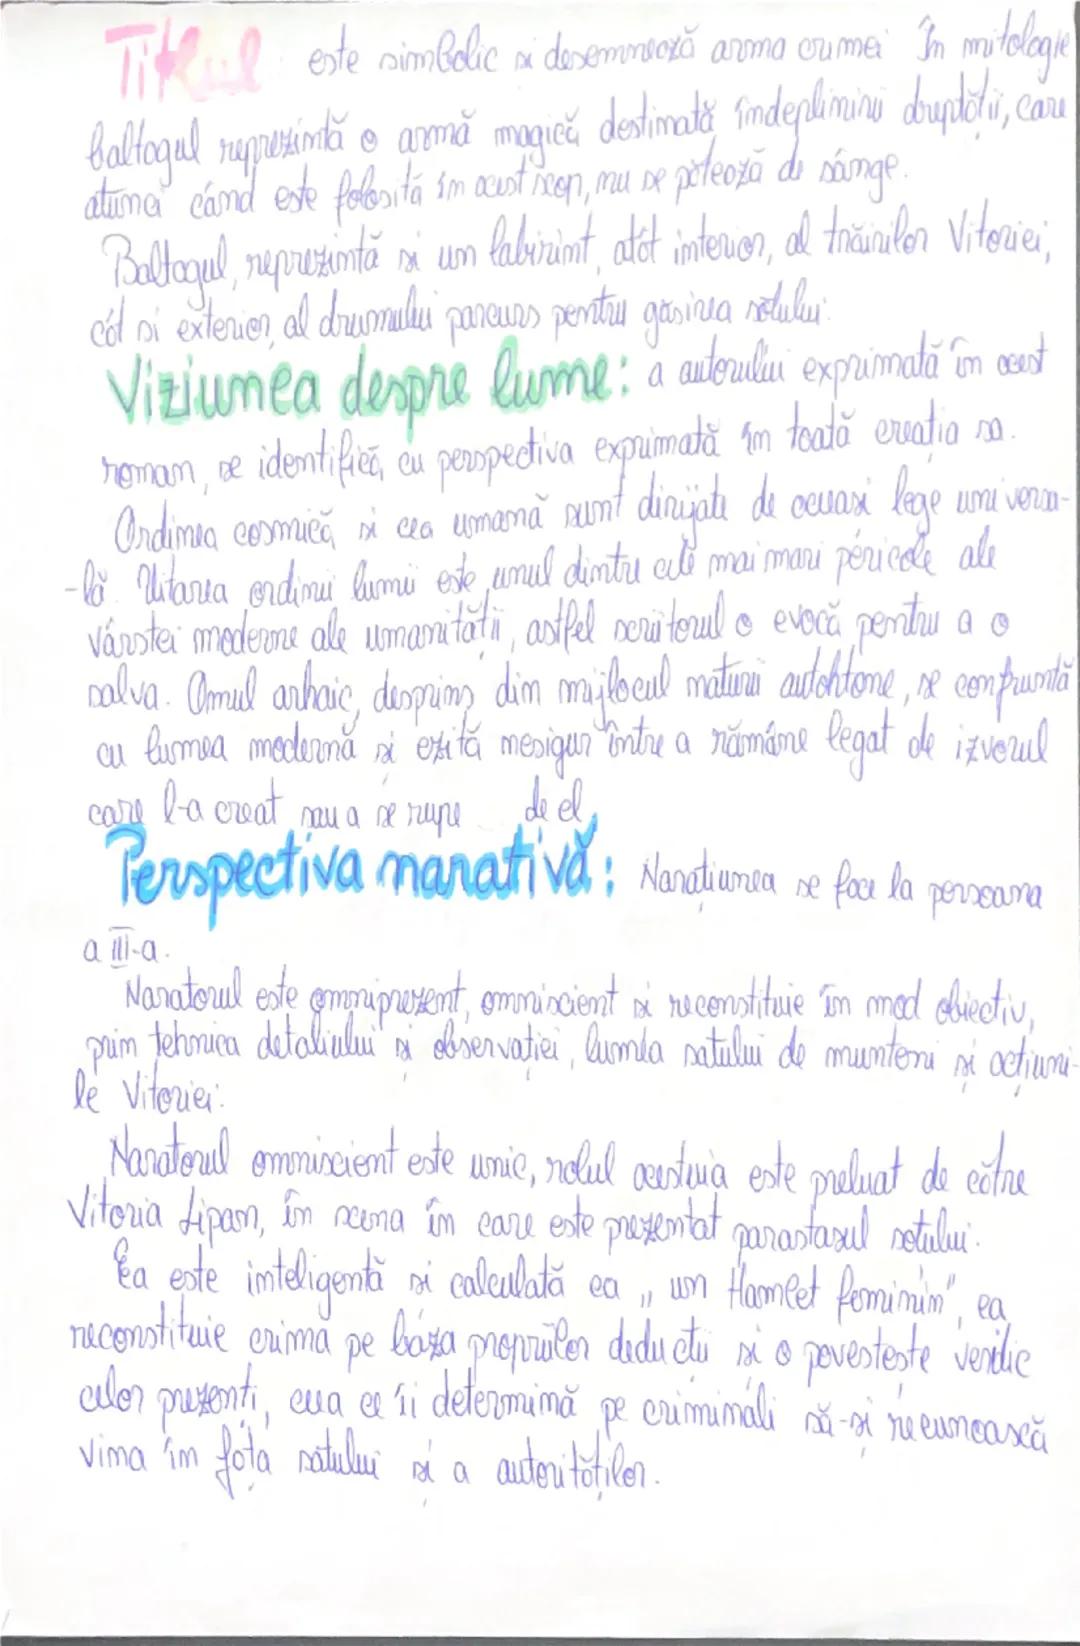 Titlul este simbolic și desemnează arma crimei În mitologie
baltagul reprezintă o armă magică destimată îndeplinirii dreptății, care
atunci când este folosită în acest scop, nu se pătează de sânge.
Baltagul, reprezintă și un labirint, atât interior, al trăirilor Vitoriei,
cât și exterior, al drumului parcurs pentru găsirea soțului.
Viziunea despre lume: a autorului exprimată în acest
roman, se identifică, cu perspectiva exprimată în toată creația sa.
Ordinea cosmică și cea umană sunt dirijate de aceeași lege universa-
-lă. Uitarea ordinii lumii este unul dintre cele mai mari pericole ale
vârstei moderne ale umanității, astfel scriitorul o evocă pentru a o
salva. Omul arhaic, desprins din mijlocul naturii autohtone, se confruntă
cu lumea modernă și ezită nesigur între a rămâne legat de izvorul
care l-a creat sau a se rupe de el.
Perspectiva narativă: Narațiunea se face la persoana
a III-a.
Naratorul este omniprezent, omniscient și reconstituie în mod obiectiv,
prin tehnica detaliului și observației, lumea satului de munteni și acțiuni-
le Vitoriei.
Naratorul omniscient este unic, rolul acestuia este preluat de către
Vitoria Lipan, în scena în care este prezentat parastasul soțului.
Ea este inteligentă și calculată ca „un Hamlet feminin", ea
reconstituie crima pe baza propriilor deducții și o povestește veridic
celor prezenți, ceea ce îi determină pe criminali să-și recunoască
vina în fața satului și a autorităților.